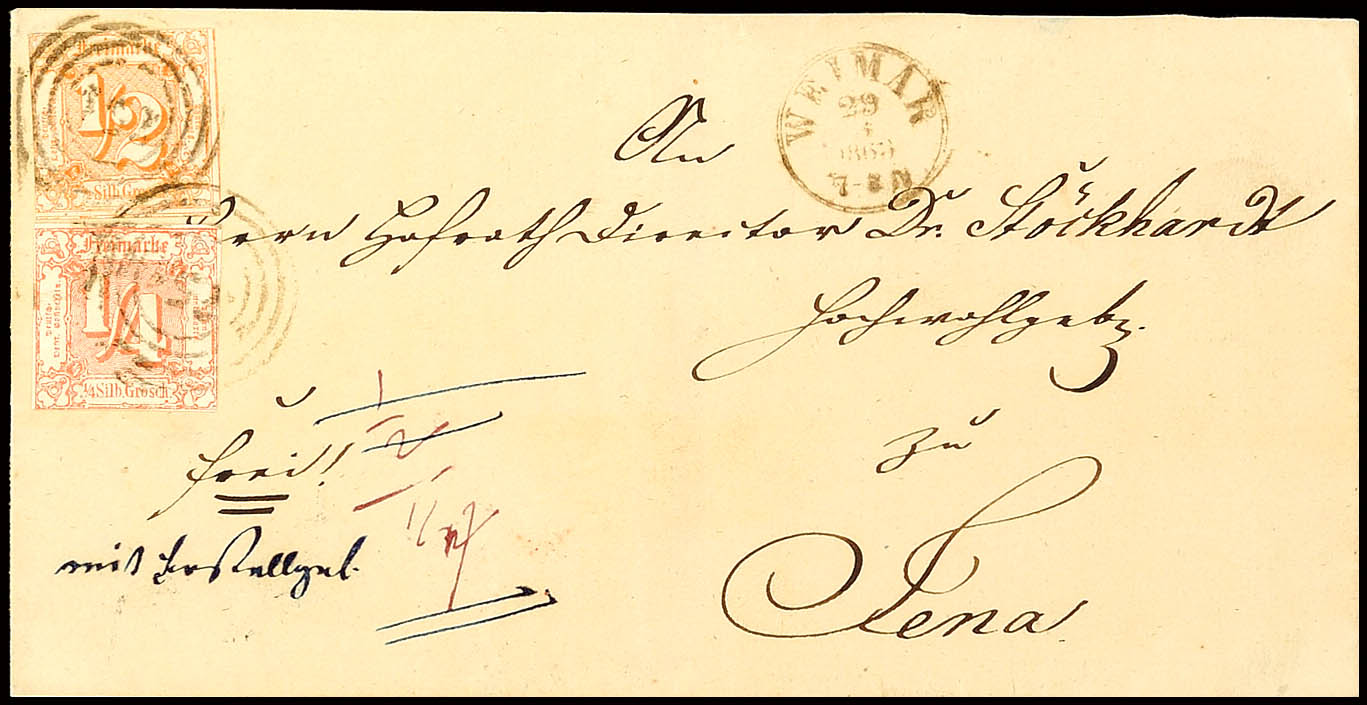 Freimarke
1/2
1/2 Silb. Grosch.
Freimarke
1/4
1/4 Silb. Grosch.
WEIMAR
29
7-8 N
An
Herrn Hofrath Director Dr. Stöckhardt
Hochwohlgeb.
zu
Jena
frei!
mit Bestellgel.